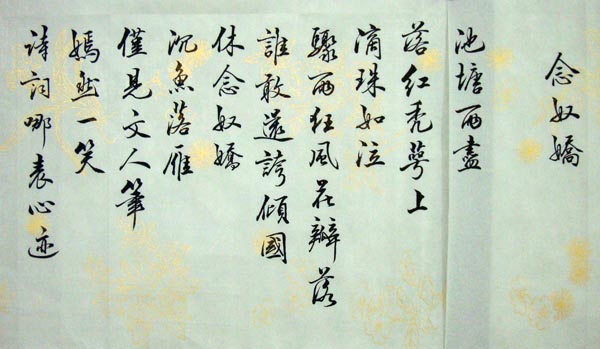 念奴嬌
池塘雨盡
落紅禿萼上
滴珠如泣
驟雨狂風花瓣落
誰敢還誇傾國
休念奴嬌
沉魚落雁
僅見文人筆
嫣然一笑
詩詞哪表心迹